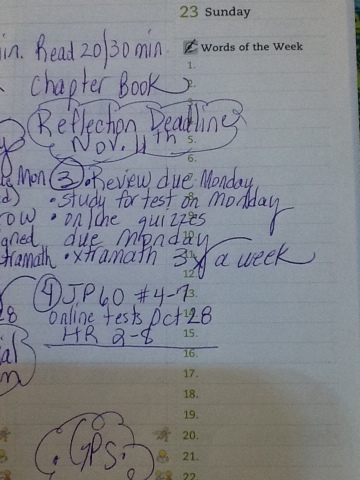 23 Sunday
in. Read 20/30 min.
Words of the Week
1.
Chapter Book
2.
Reflection Deadline
Nov. 11th
5.
6.
Mon ③ • Review due Monday
• study for test on monday
8.
ow • online quizzes
9.
igned due monday
10.
tramath • xtramath 3x a week
11.
④ JP60 #4-7
13.
28 online tests Oct 28
14.
HR 2-8
15.
16.
17.
18.
19.
GPS
20.
21.
22